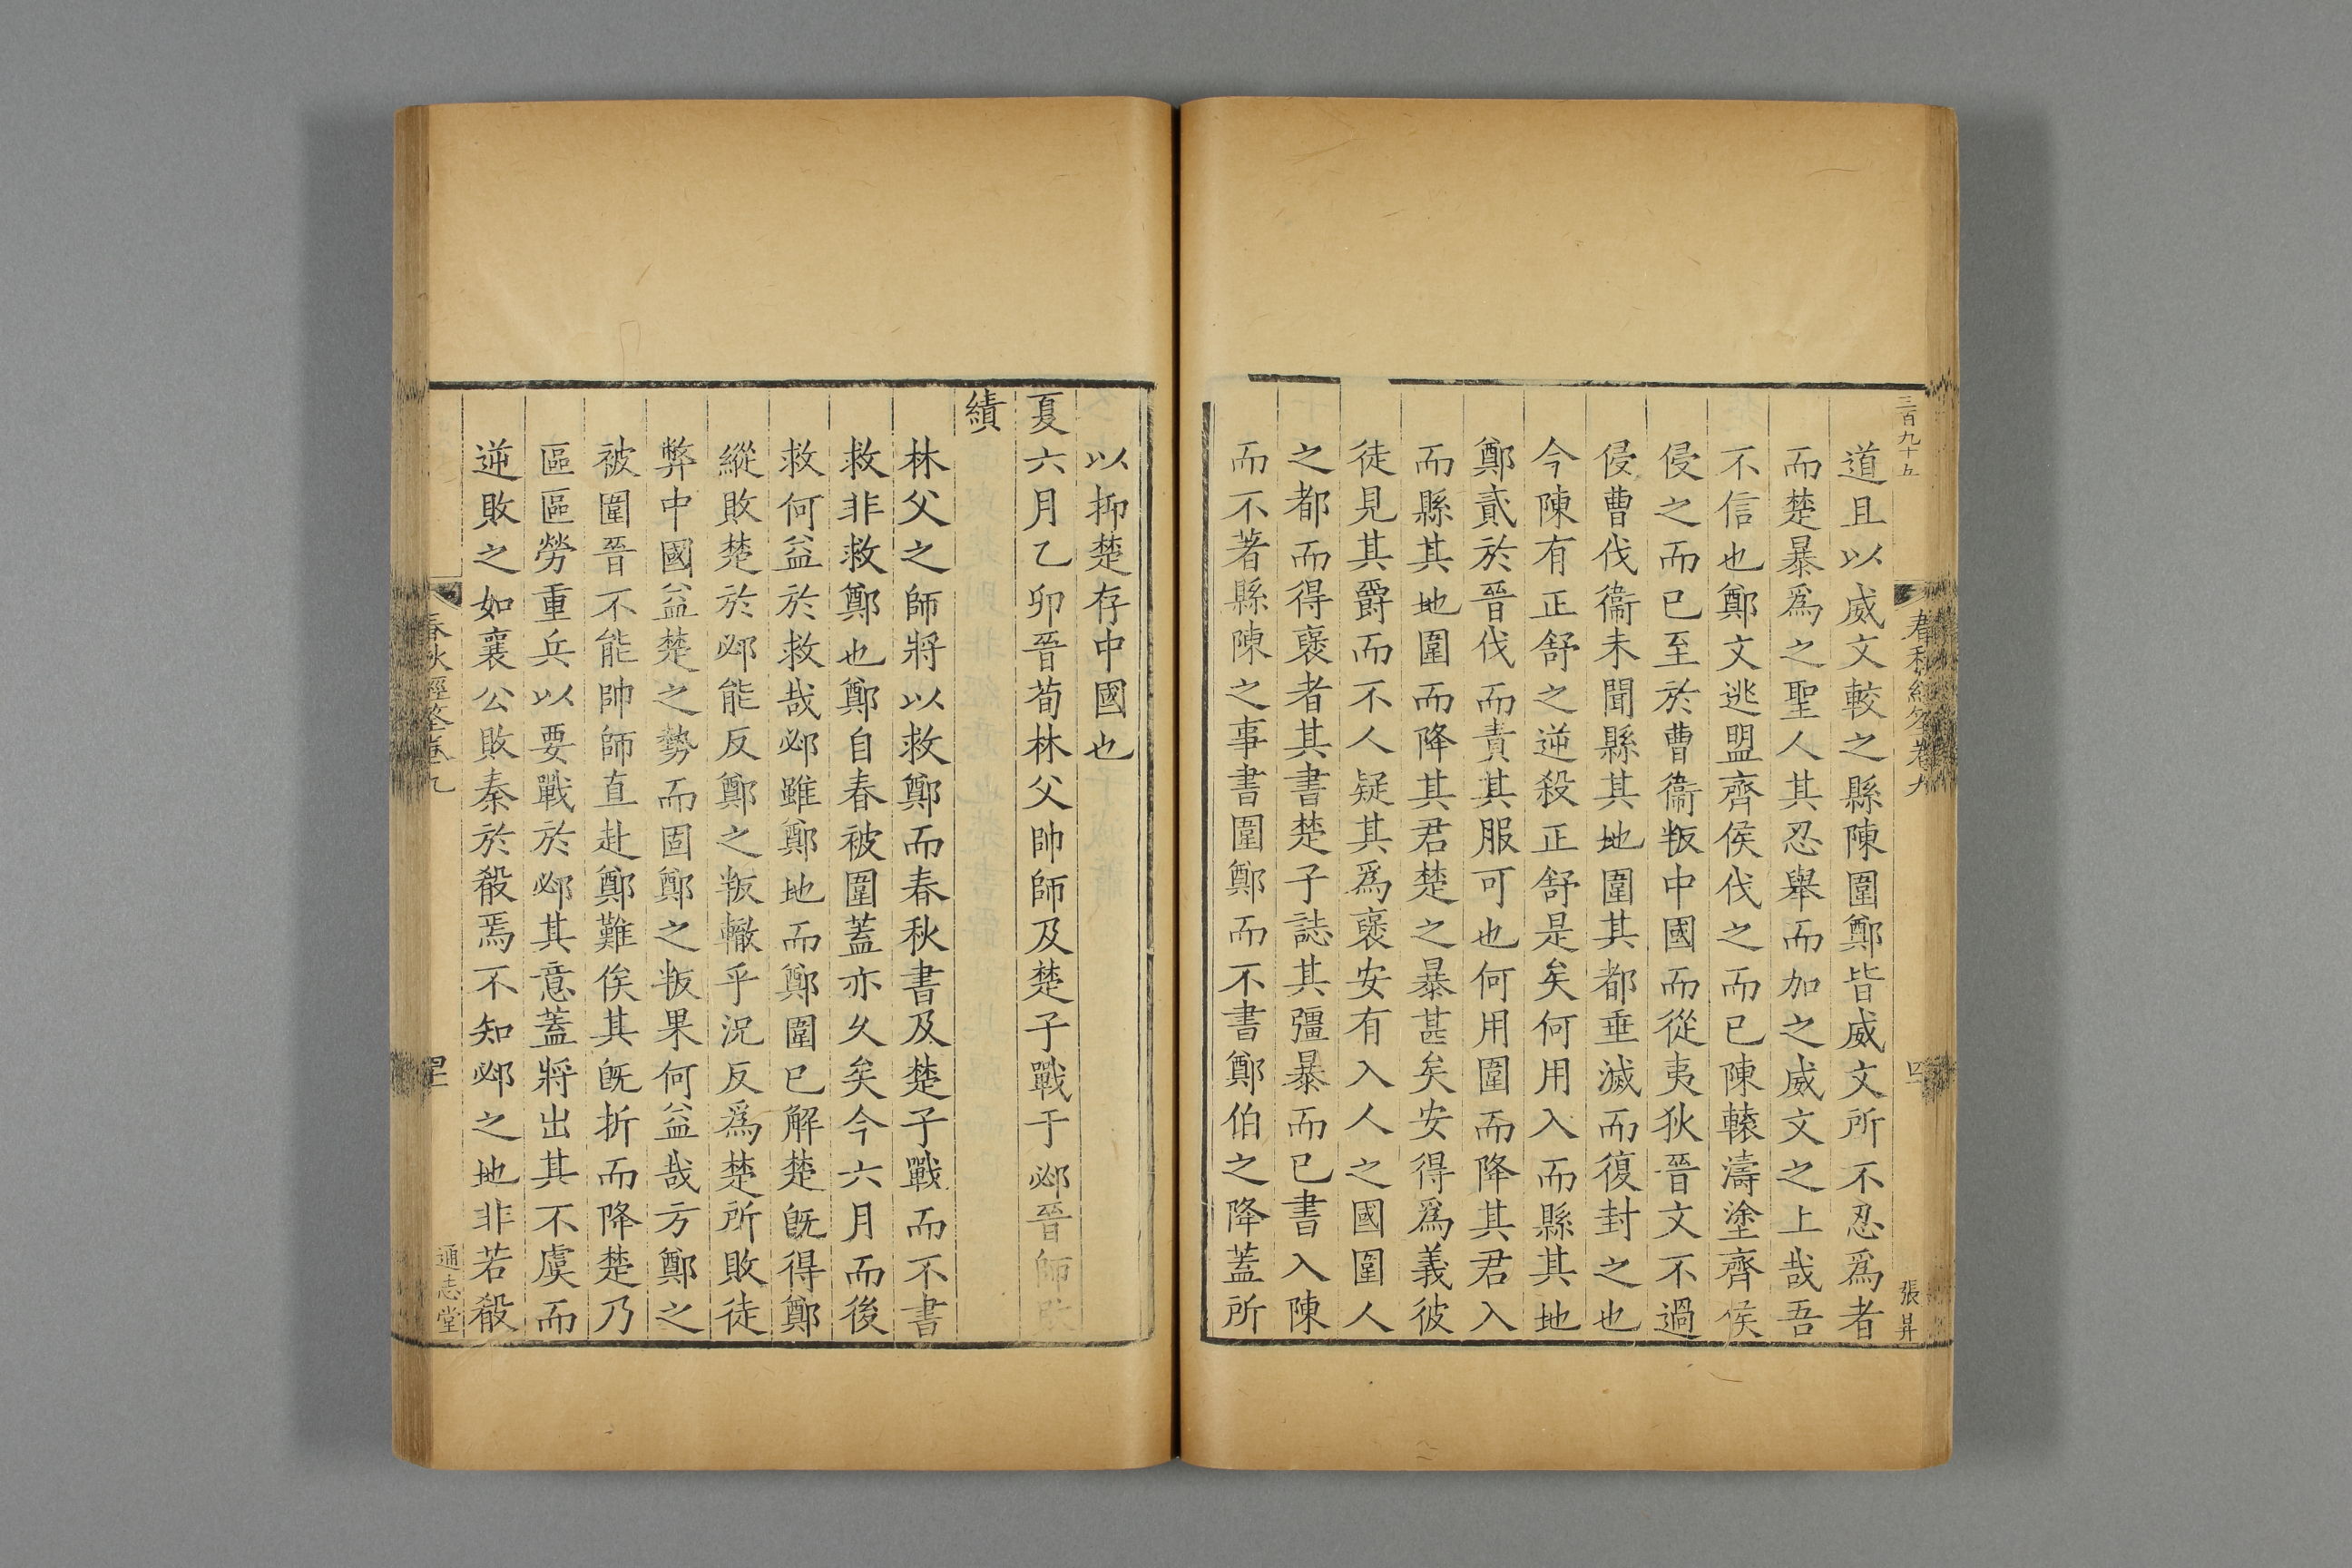 三百九十五
春秋經筌卷九
張昇
道且以威文較之縣陳圍鄭皆威文所不忍爲者
而楚暴爲之聖人其忍舉而加之威文之上哉吾
不信也鄭文逃盟齊侯伐之而已陳轅濤塗齊侯
侵之而已至於曹衞叛中國而從夷狄晉文不過
侵曹伐衞未聞縣其地圍其都垂滅而復封之也
今陳有正舒之逆殺正舒是矣何用入而縣其地
鄭貳於晉伐而責其服可也何用圍而降其君入
而縣其地圍而降其君楚之暴甚矣安得爲義彼
徒見其爵而不人疑其爲襃安有入人之國圍人
之都而得襃者其書楚子誌其彊暴而已書入陳
而不著縣陳之事書圍鄭而不書鄭伯之降蓋所
以抑楚存中國也
夏六月乙卯晉荀林父帥師及楚子戰于邲晉師敗
績
林父之師將以救鄭而春秋書及楚子戰而不書
救非救鄭也鄭自春被圍蓋亦久矣今六月而後
救何益於救哉邲雖鄭地而鄭圍已解楚旣得鄭
縱敗楚於邲能反鄭之叛轍乎況反爲楚所敗徒
弊中國益楚之勢而固鄭之叛果何益哉方鄭之
被圍晉不能帥師直赴鄭難俟其旣折而降楚乃
區區勞重兵以要戰於邲其意蓋將出其不虞而
逆敗之如襄公敗秦於殽焉不知邲之地非若殽
春秋經筌卷九
通志堂